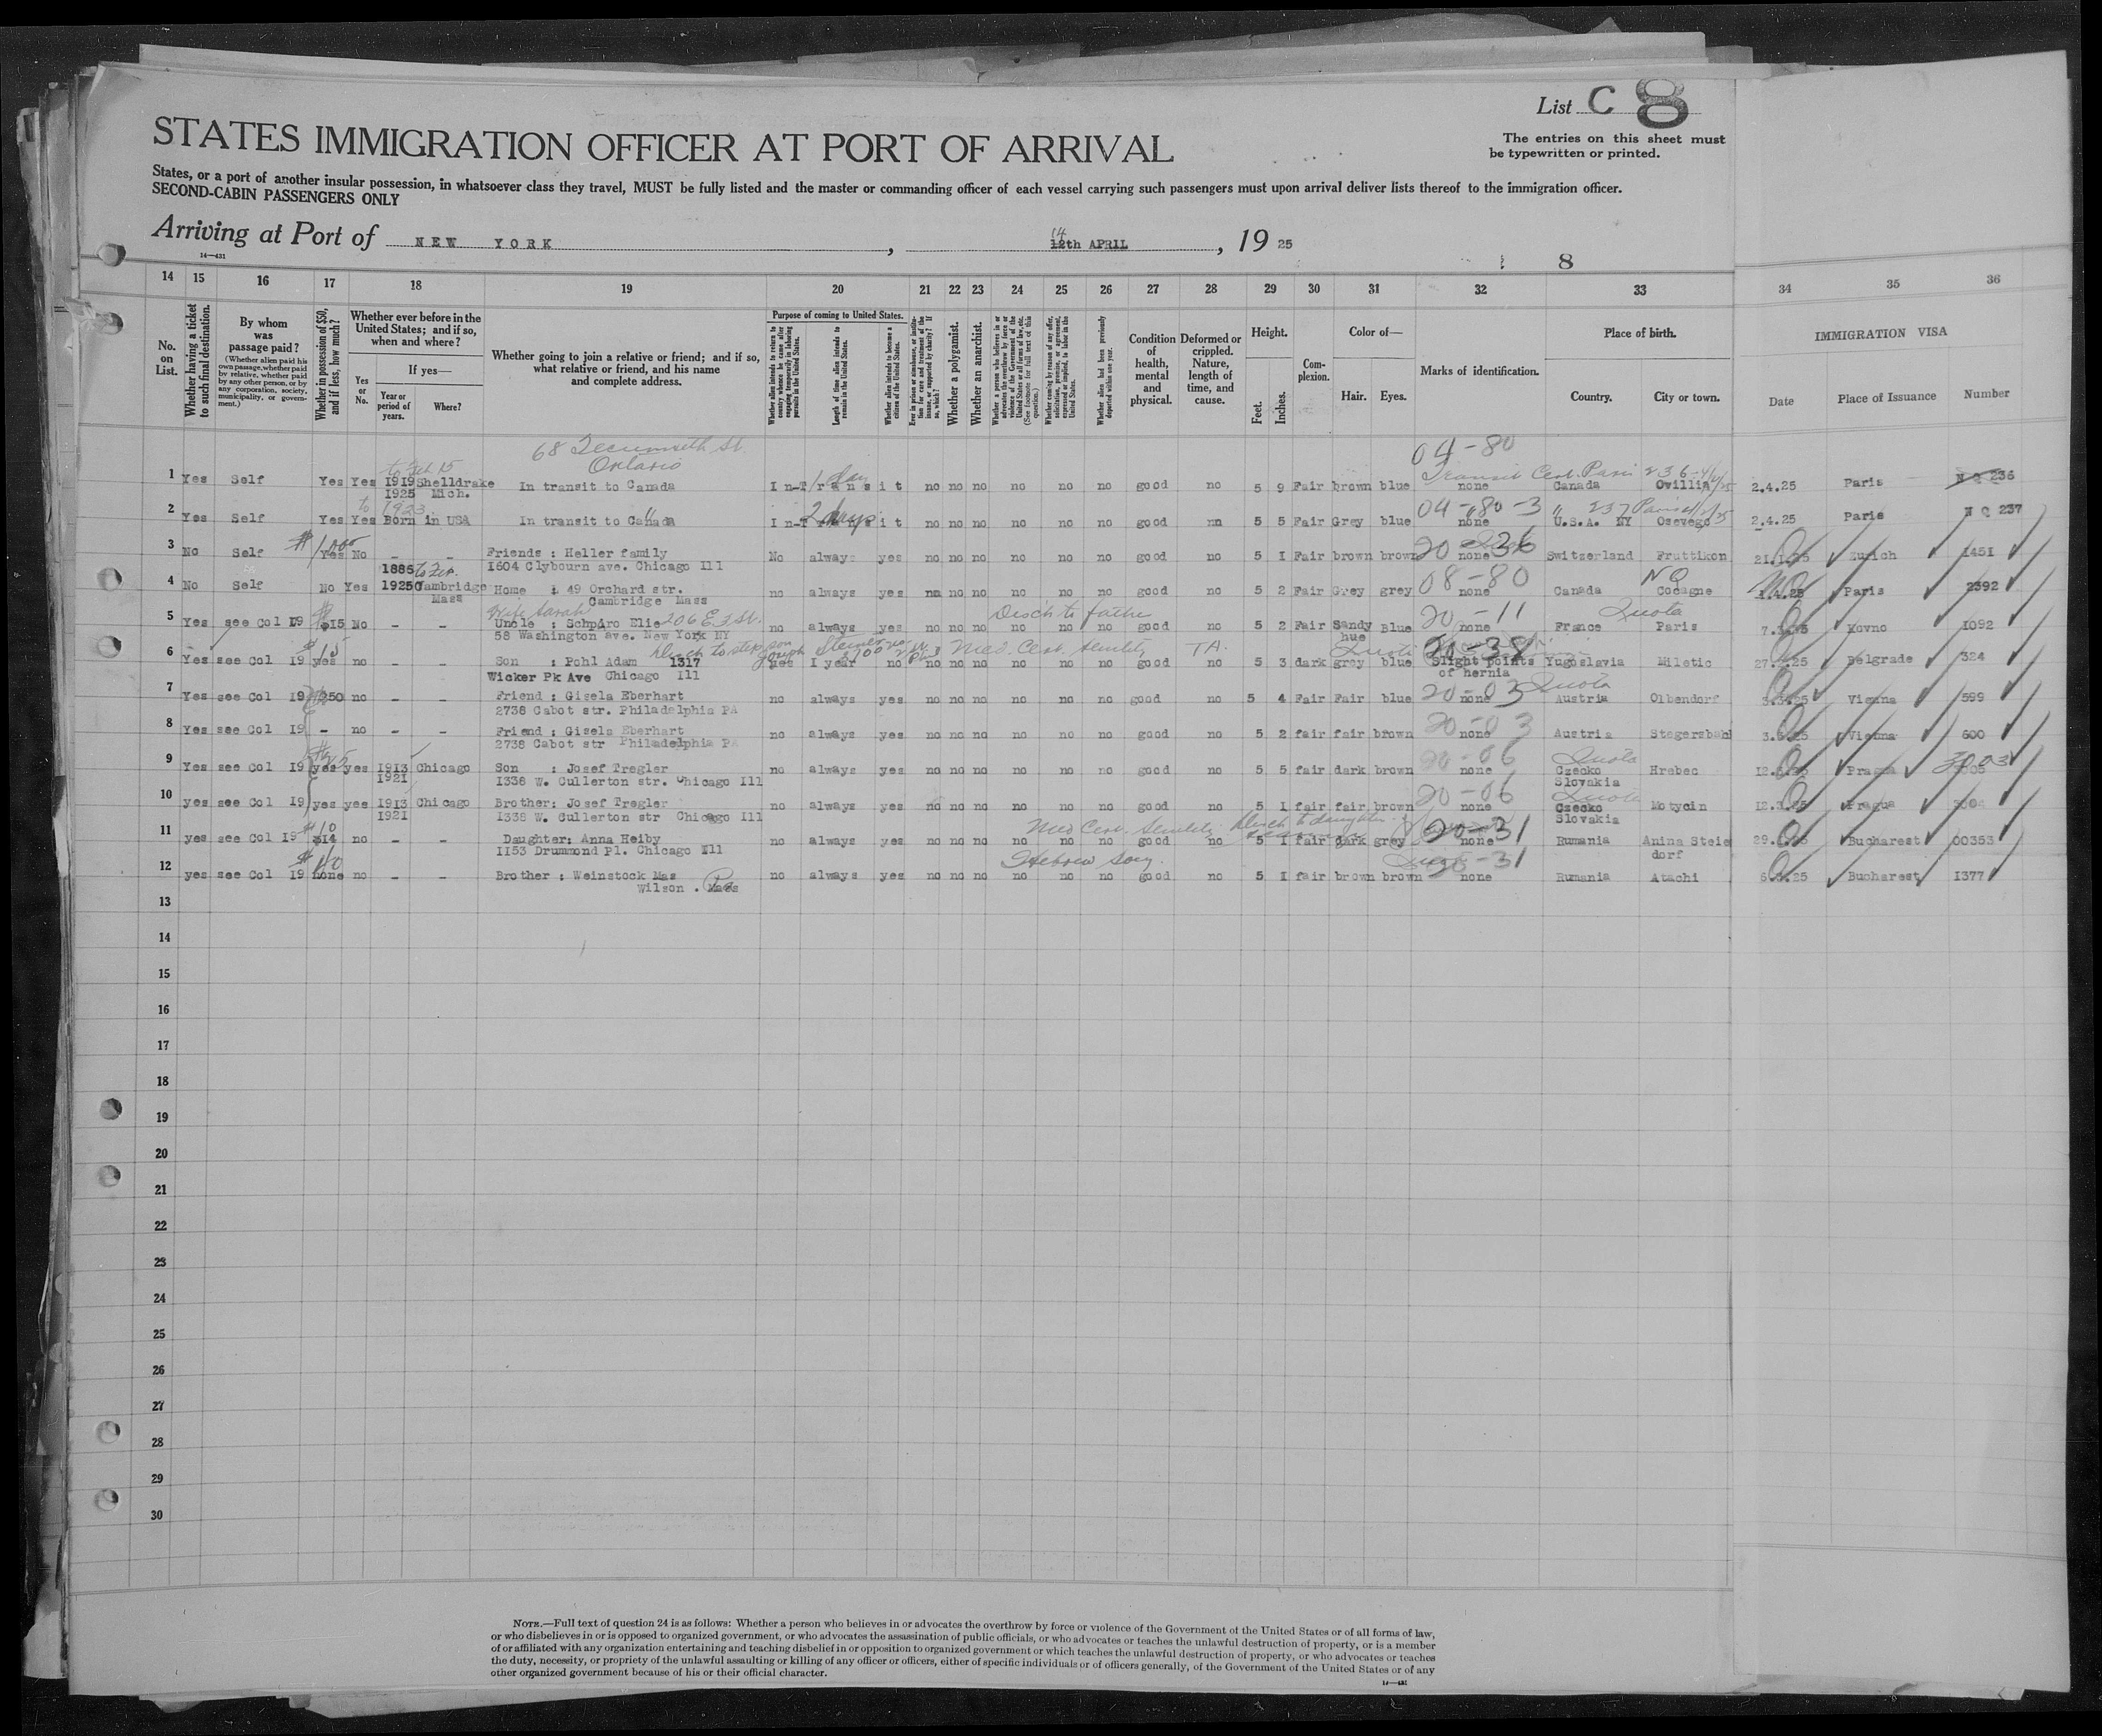 List C 8
STATES IMMIGRATION OFFICER AT PORT OF ARRIVAL
The entries on this sheet must
be typewritten or printed.
States, or a port of another insular possession, in whatsoever class they travel, MUST be fully listed and the master or commanding officer of each vessel carrying such passengers must upon arrival deliver lists thereof to the immigration officer.
SECOND-CABIN PASSENGERS ONLY
Arriving at Port of NEW YORK , 14 12th APRIL , 19 25
14—431
8
14 15 16 17 18 19 20 21 22 23 24 25 26 27 28 29 30 31 32 33 34 35 36
No. on List.
Whether having a ticket to such final destination.
By whom was passage paid?
(Whether alien paid his own passage, whether paid by relative, whether paid by any other person, or by any corporation, society, municipality, or government.)
Whether in possession of $50, and if less, how much?
Whether ever before in the United States; and if so, when and where?
Yes or No.
If yes—
Year or period of years.
Where?
Whether going to join a relative or friend; and if so, what relative or friend, and his name and complete address.
Purpose of coming to United States.
Whether alien intends to return to country whence he came after engaging temporarily in laboring pursuits in the United States.
Length of time alien intends to remain in the United States.
Whether alien intends to become a citizen of the United States.
Ever in prison or almshouse, or institution for care and treatment of the insane, or supported by charity? If so, which?
Whether a polygamist.
Whether an anarchist.
(See footnote for full text of this question.)
Whether coming by reason of any offer, solicitation, promise, or agreement, expressed or implied, to labor in the United States.
Whether alien had been previously deported within one year.
Condition of health, mental and physical.
Deformed or crippled. Nature, length of time, and cause.
Height.
Feet. Inches.
Complexion.
Color of—
Hair. Eyes.
Marks of identification.
Place of birth.
Country. City or town.
IMMIGRATION VISA
Date Place of Issuance Number
68 Tecumseth St.
Ontario
04-80
Transit Cert. Paris 236
1 Yes Self Yes Yes 1919 Shelldrake In transit to Canada In-Transit 1 day no no no no no no good no 5 9 Fair brown blue none Canada Ovillia 2.4.25 Paris N Q 236
1925 Mich.
to 1923
04-80-3 " 237 Paris
2 Yes Self Yes Yes Born in USA In transit to Canada In-Transit 2 days no no no no no no good no 5 5 Fair Grey blue none U.S.A. NY Osevego 2.4.25 Paris N Q 237
$1000
20-36
3 No Self Yes No - - Friends : Heller family No always yes no no no no no no good no 5 1 Fair brown brown none Switzerland Fruttikon Zurich 1451
1604 Clybourn ave. Chicago Ill
1885 to
08-80 NQ
4 No Self No Yes 1925 Cambridge Home : 49 Orchard str. no always yes no no no no no no good no 5 2 Fair Grey grey none Canada Cocagne 1.4.25 Paris 2392
Mass Cambridge Mass
Wife Sarah 206 E 3 St. Disch to father 20-11 Quota
5 Yes see Col 19 $15 No - - Uncle : Schpiro Elie no always yes no no no no no no good no 5 2 Fair Sandy Blue none France Paris Kovno 1092
58 Washington ave. New York NY hue
$15 Disch to step son Joseph Med. Cert. Senility TA. Quota 20-38
6 Yes see Col 19 yes no - - Son : Pohl Adam 1317 yes 1 year no no no no no no no good no 5 3 dark grey blue Slight points Yugoslavia Miletic Belgrade 324
Wicker Pk Ave Chicago Ill of hernia
20-03 Quota
7 Yes see Col 19 $250 no - - Friend : Gisela Eberhart no always yes no no no no no no good no 5 4 Fair Fair blue none Austria Olbendorf Vienna 599
2738 Cabot str. Philadelphia PA
20-03
8 Yes see Col 19 - no - - Friend : Gisela Eberhart no always yes no no no no no no good no 5 2 fair fair brown none Austria Stegerzbahl Vienna 600
2738 Cabot str Philadelphia PA
20-06 Quota
9 Yes see Col 19 yes yes 1913 Chicago Son : Josef Tregler no always yes no no no no no no good no 5 5 fair dark brown none Czecko Hrebec Pragua 3003
1921 1338 W. Cullerton str. Chicago Ill Slovakia
20-06 Quota
10 yes see Col 19 yes yes 1913 Chicago Brother: Josef Tregler no always yes no no no no no no good no 5 1 fair fair brown none Czecko Motycin Pragua 3004
1921 1338 W. Cullerton str Chicago Ill Slovakia
$10 Med Cert. Senility Disch to daughter 20-31
11 yes see Col 19 $14 no - - Daughter: Anna Heiby no always yes no no no no no no good no 5 1 fair dark grey none Rumania Anina Steie Bucharest 00353
1153 Drummond Pl. Chicago Ill dorf
$10 Hebrew Soc'y. Quota 20-31
12 yes see Col 19 none no - - Brother : Weinstock Max no always yes no no no no no no good no 5 1 fair brown brown none Rumania Atachi Bucharest 1377
Wilson . Mass Pa
13
14
15
16
17
18
19
20
21
22
23
24
25
26
27
28
29
30
NOTE.—Full text of question 24 is as follows: Whether a person who believes in or advocates the overthrow by force or violence of the Government of the United States or of all forms of law,
or who disbelieves in or is opposed to organized government, or who advocates the assassination of public officials, or who advocates or teaches the unlawful destruction of property, or is a member
of or affiliated with any organization entertaining and teaching disbelief in or opposition to organized government or which teaches the unlawful destruction of property, or who advocates or teaches
the duty, necessity, or propriety of the unlawful assaulting or killing of any officer or officers, either of specific individuals or of officers generally, of the Government of the United States or of any
other organized government because of his or their official character.